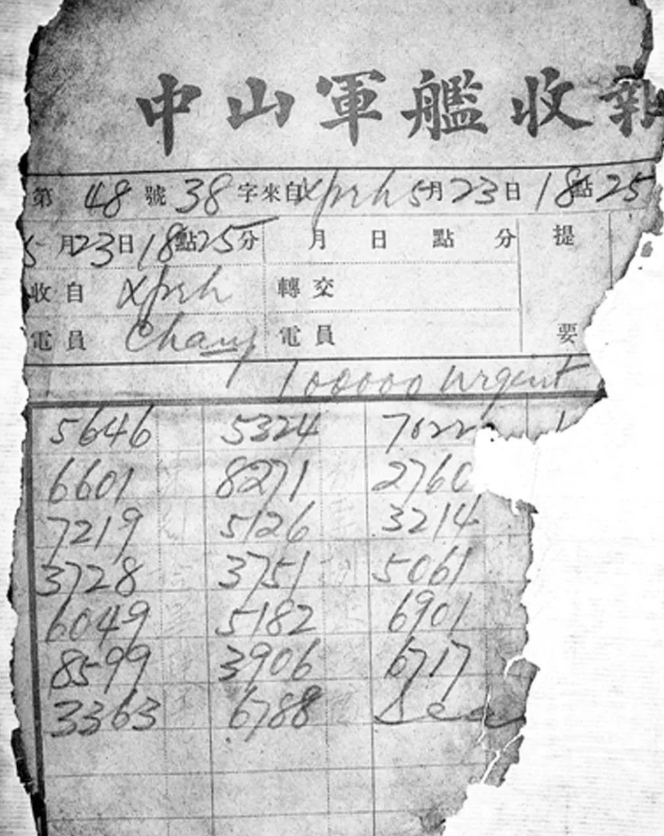 中山軍艦收報
第 48 號 38 字來自 xprh 5月 23日 18點 25
5月 23日 18點 25分 月 日 點 分 提
收自 xprh 轉交
電員 Chang 電員 要
100000 urgent
5646 5324 7022
6601 8271 2760
7219 5126 3214
3728 3751 5061
6049 5182 6901
8599 3906 6717
3363 6788